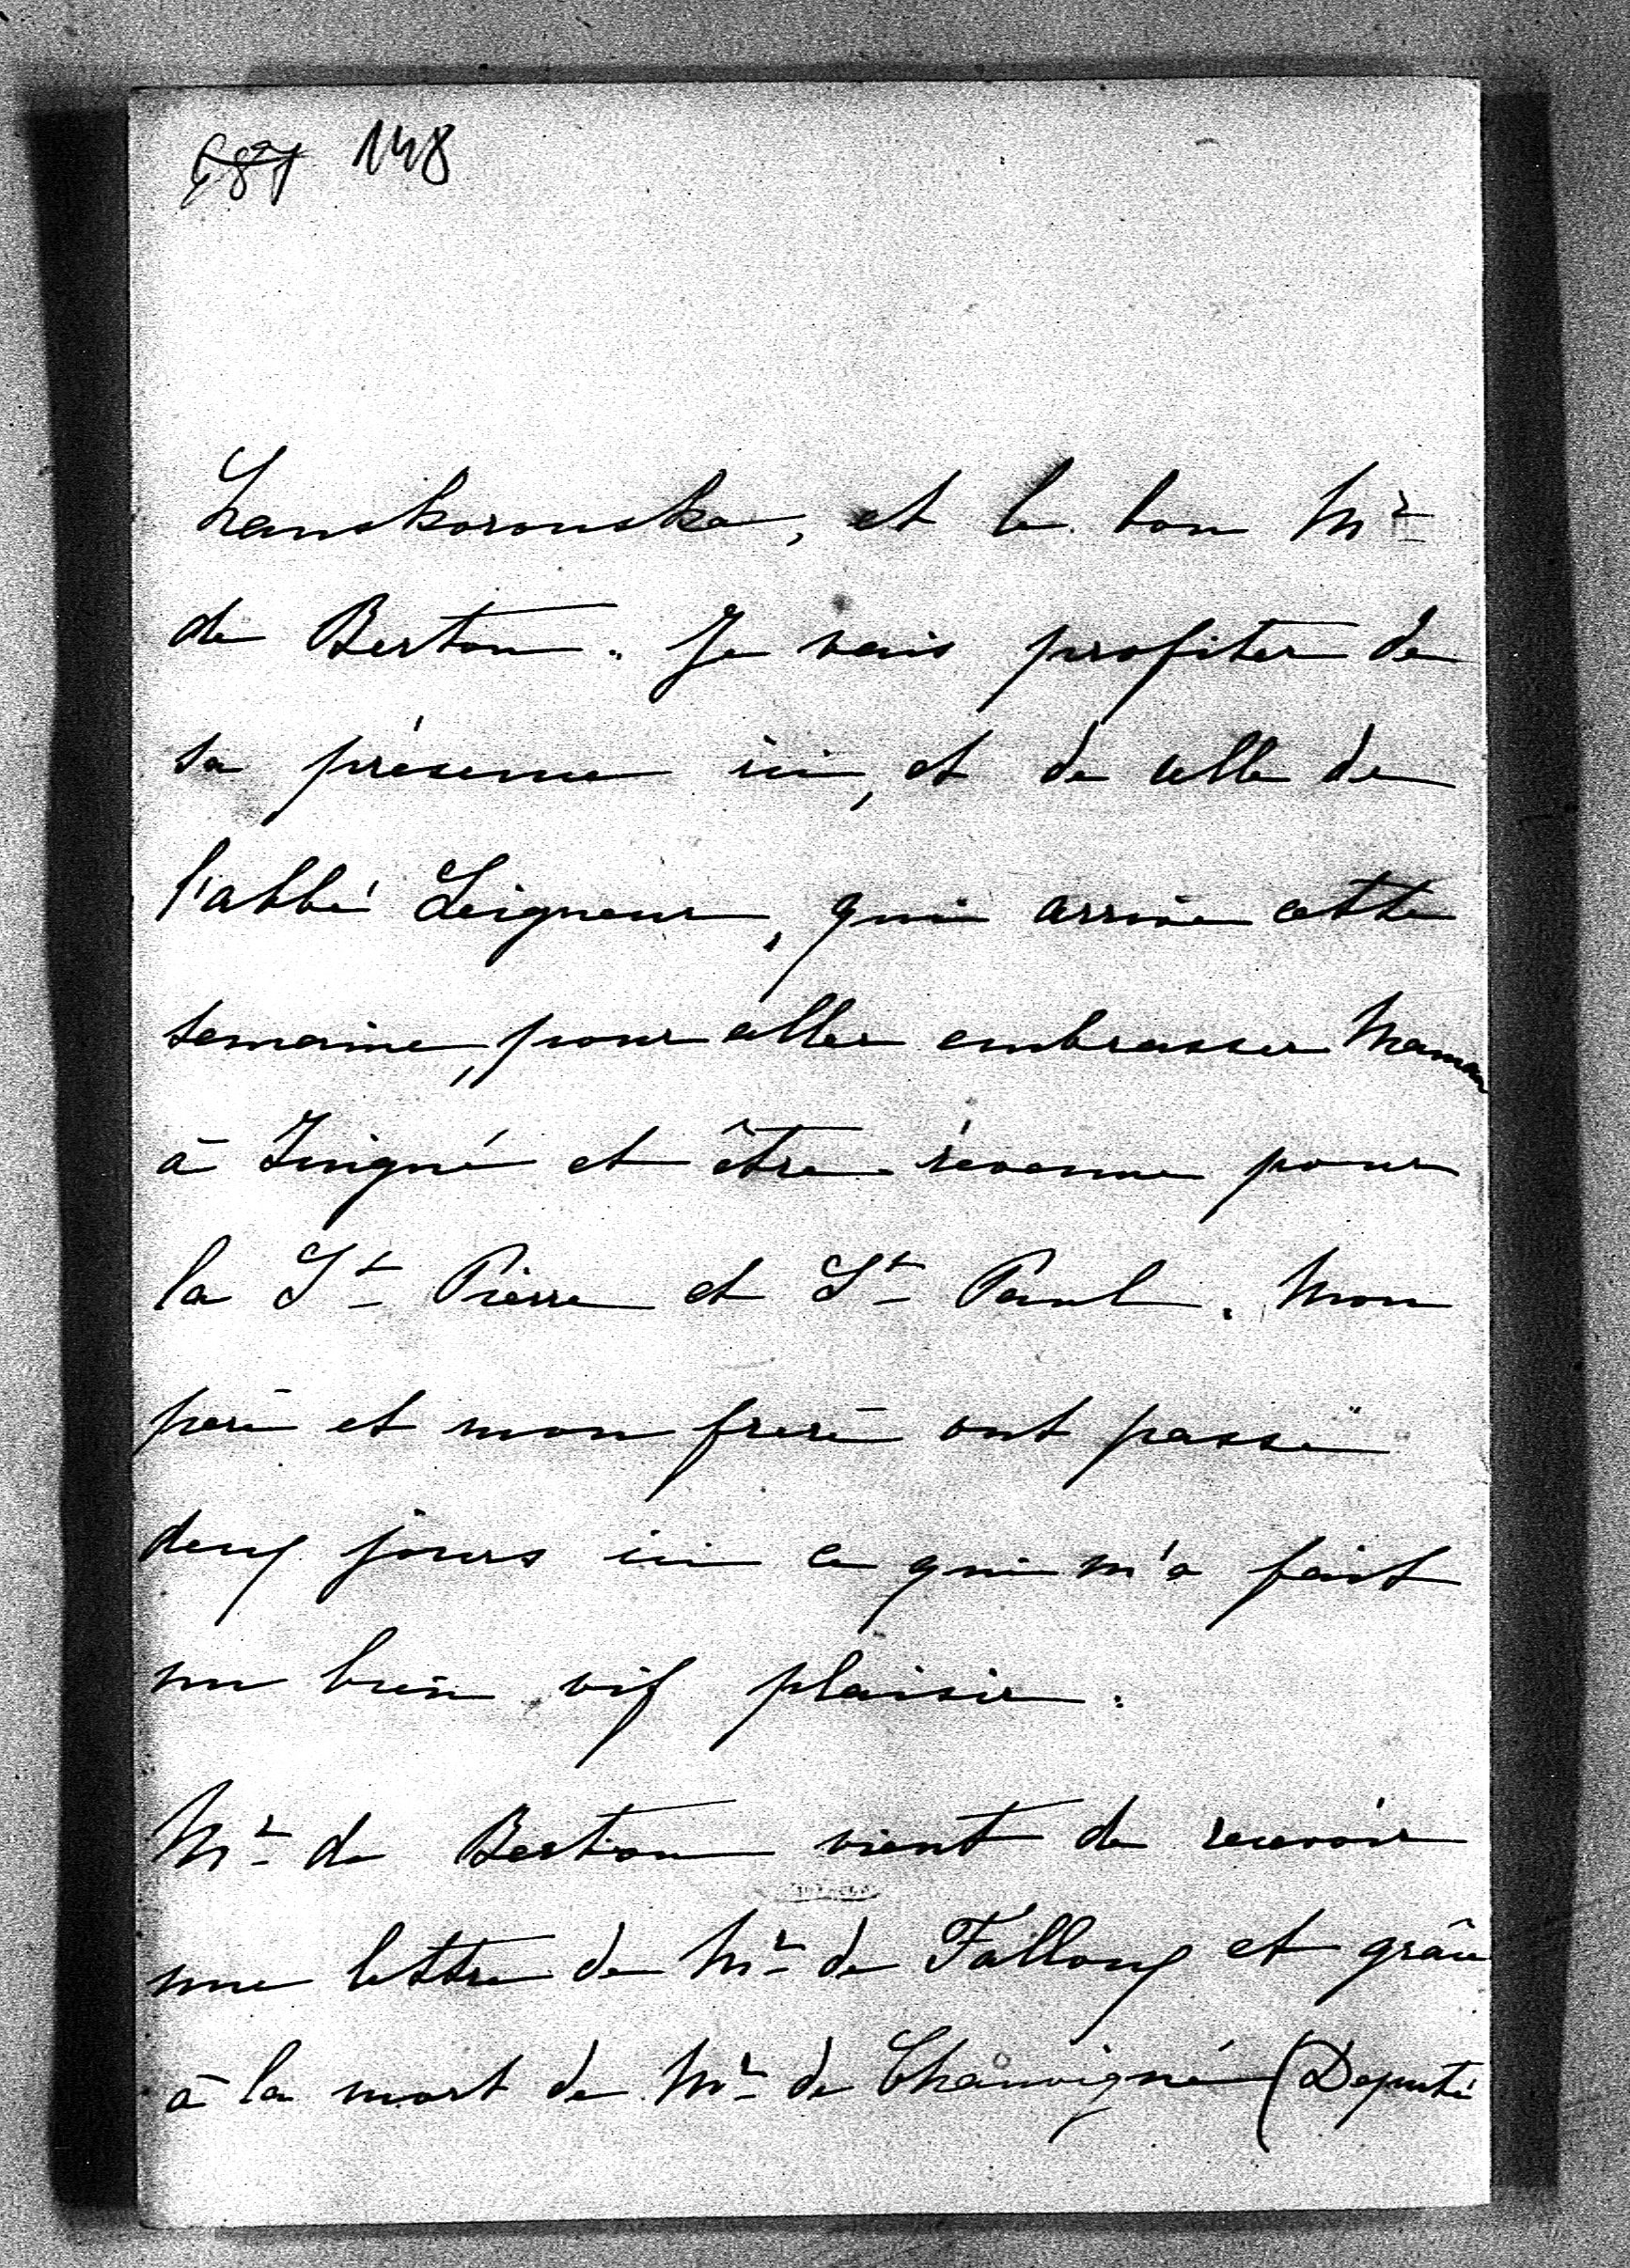 148
Lanskoronska, et le bon Mr
de Berton. Je vais profiter de
sa présence ici, et de celle de
l'abbé Seigneur, qui arrive cette
semaine, pour aller embrasser Maman
à Juigné et être revenue pour
la St Pierre et St Paul. Mon
père et mon frère ont passé
deux jours ici ce qui m'a fait
un bien vif plaisir.
Mr de Berton vient de recevoir
une lettre de Mr de Falloux et grâce
à la mort de Mr de Chauvigné (Deputé